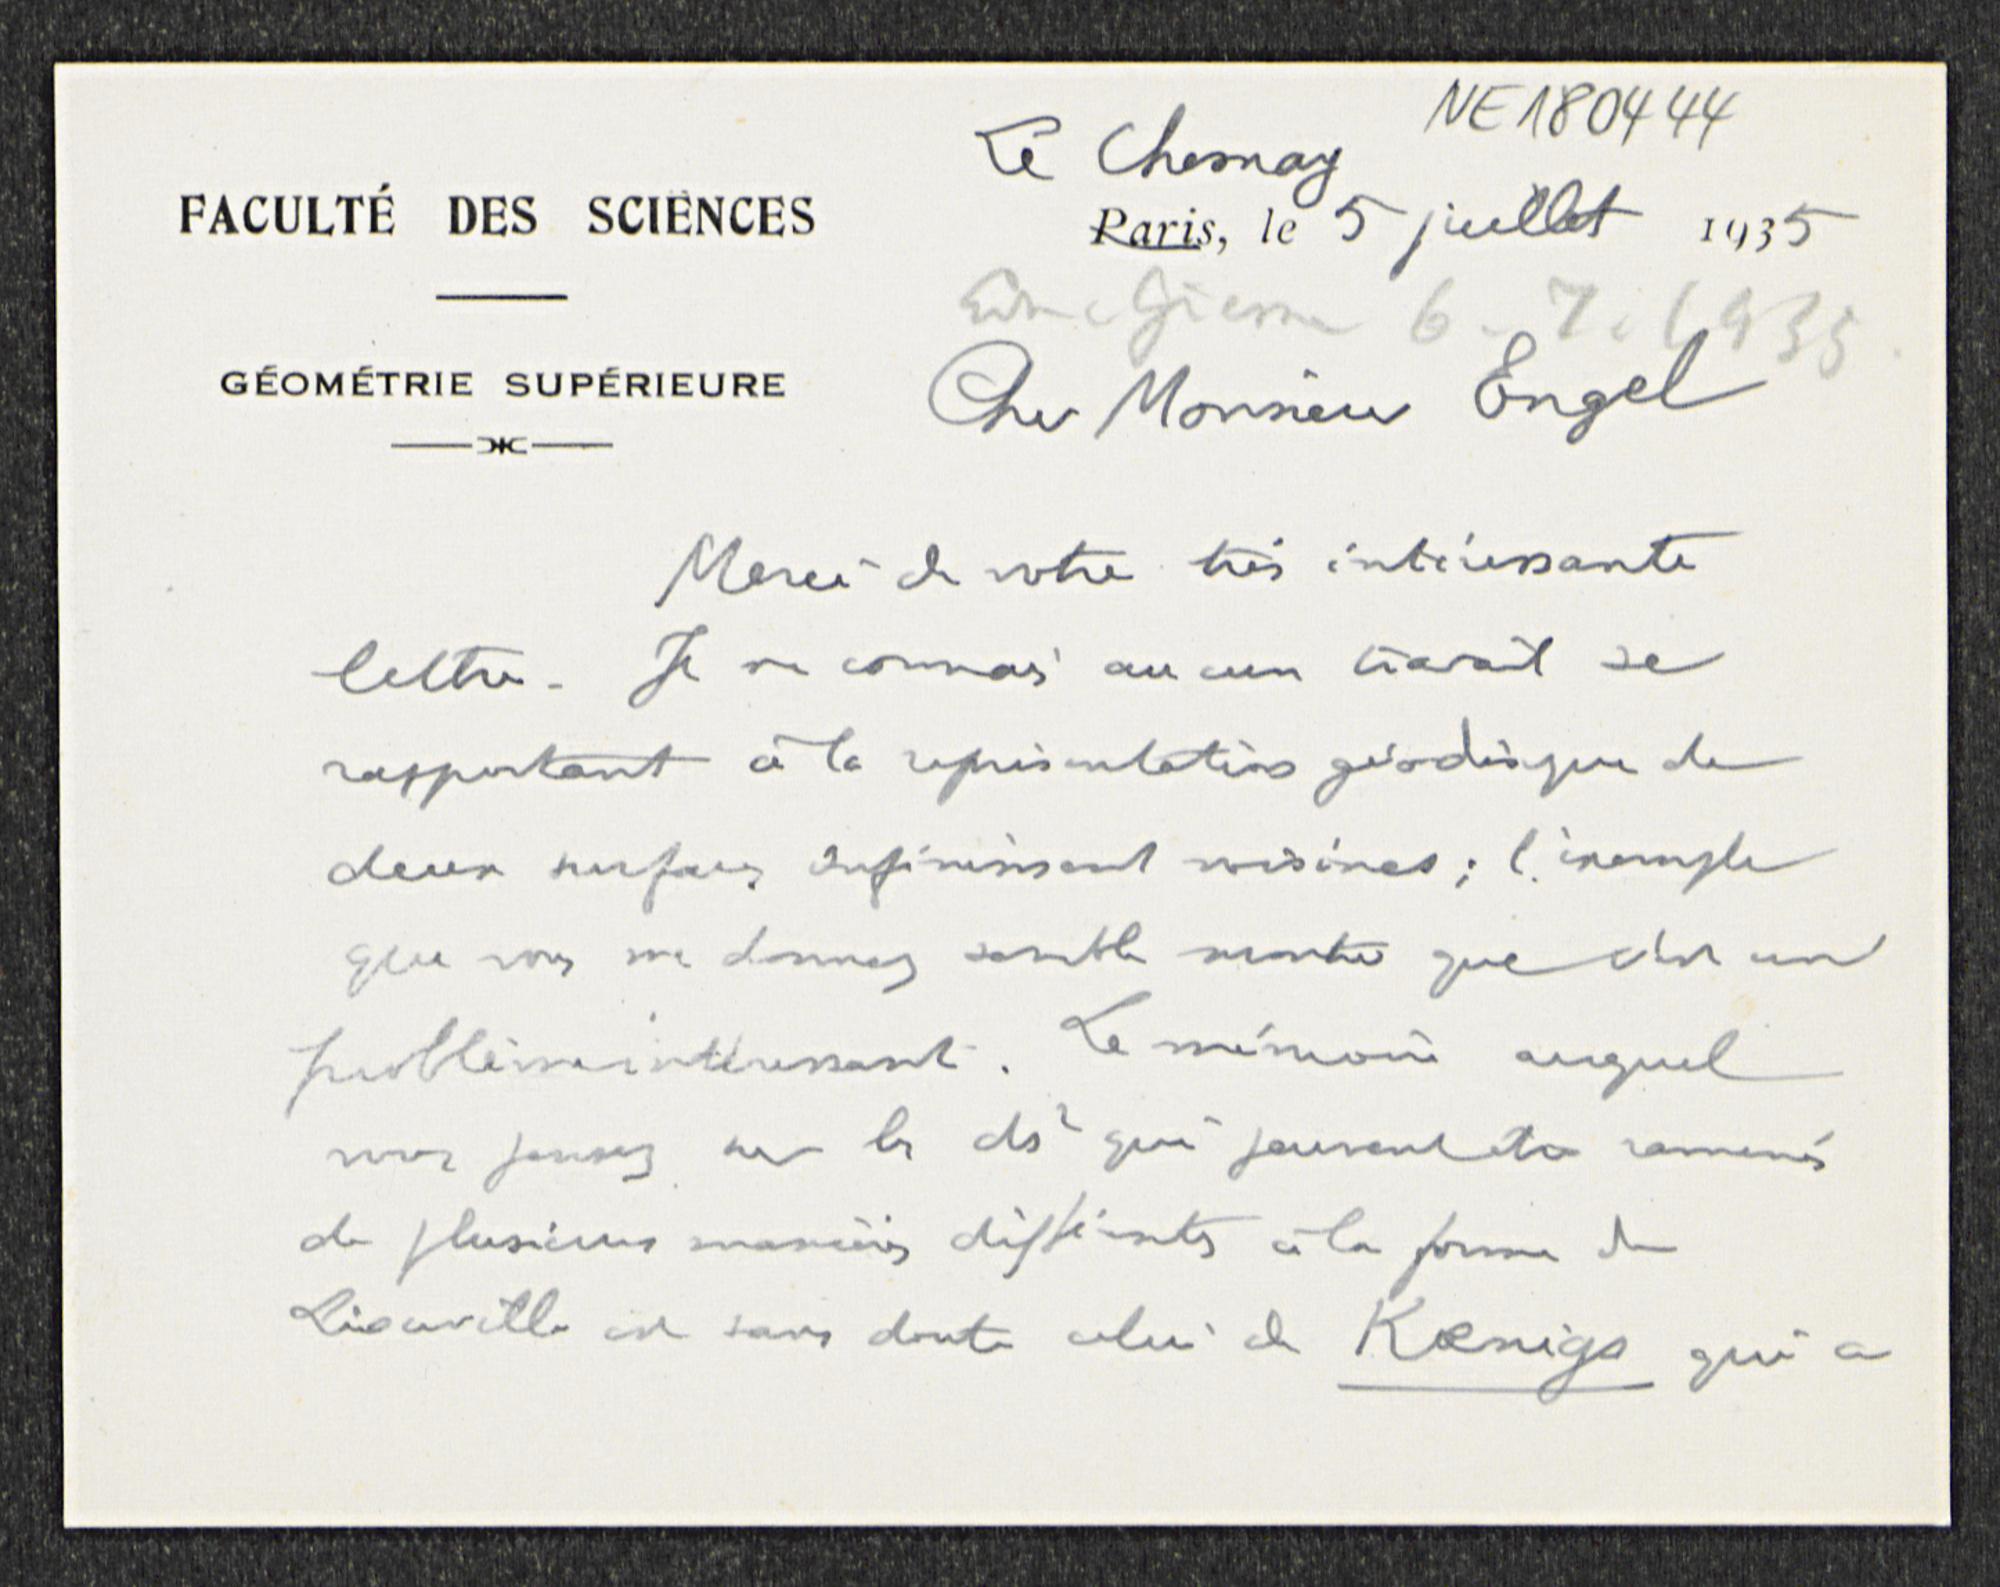 NE180444
Le Chesnay
FACULTÉ DES SCIENCES
Paris, le 5 juillet 1935
6.7.1935.
GÉOMÉTRIE SUPÉRIEURE
Cher Monsieur Engel
Merci de votre très intéressante
lettre. Je ne connais aucun travail se
rapportant à la représentation géodésique de
deux surfaces infiniment voisines ; l'exemple
que vous me donnez semble montrer que c'est un
problème intéressant. Le mémoire auquel
vous pensez sur les ds² qui peuvent être ramenés
de plusieurs manières différentes à la forme de
Liouville est sans doute celui de Kœnigs qui a